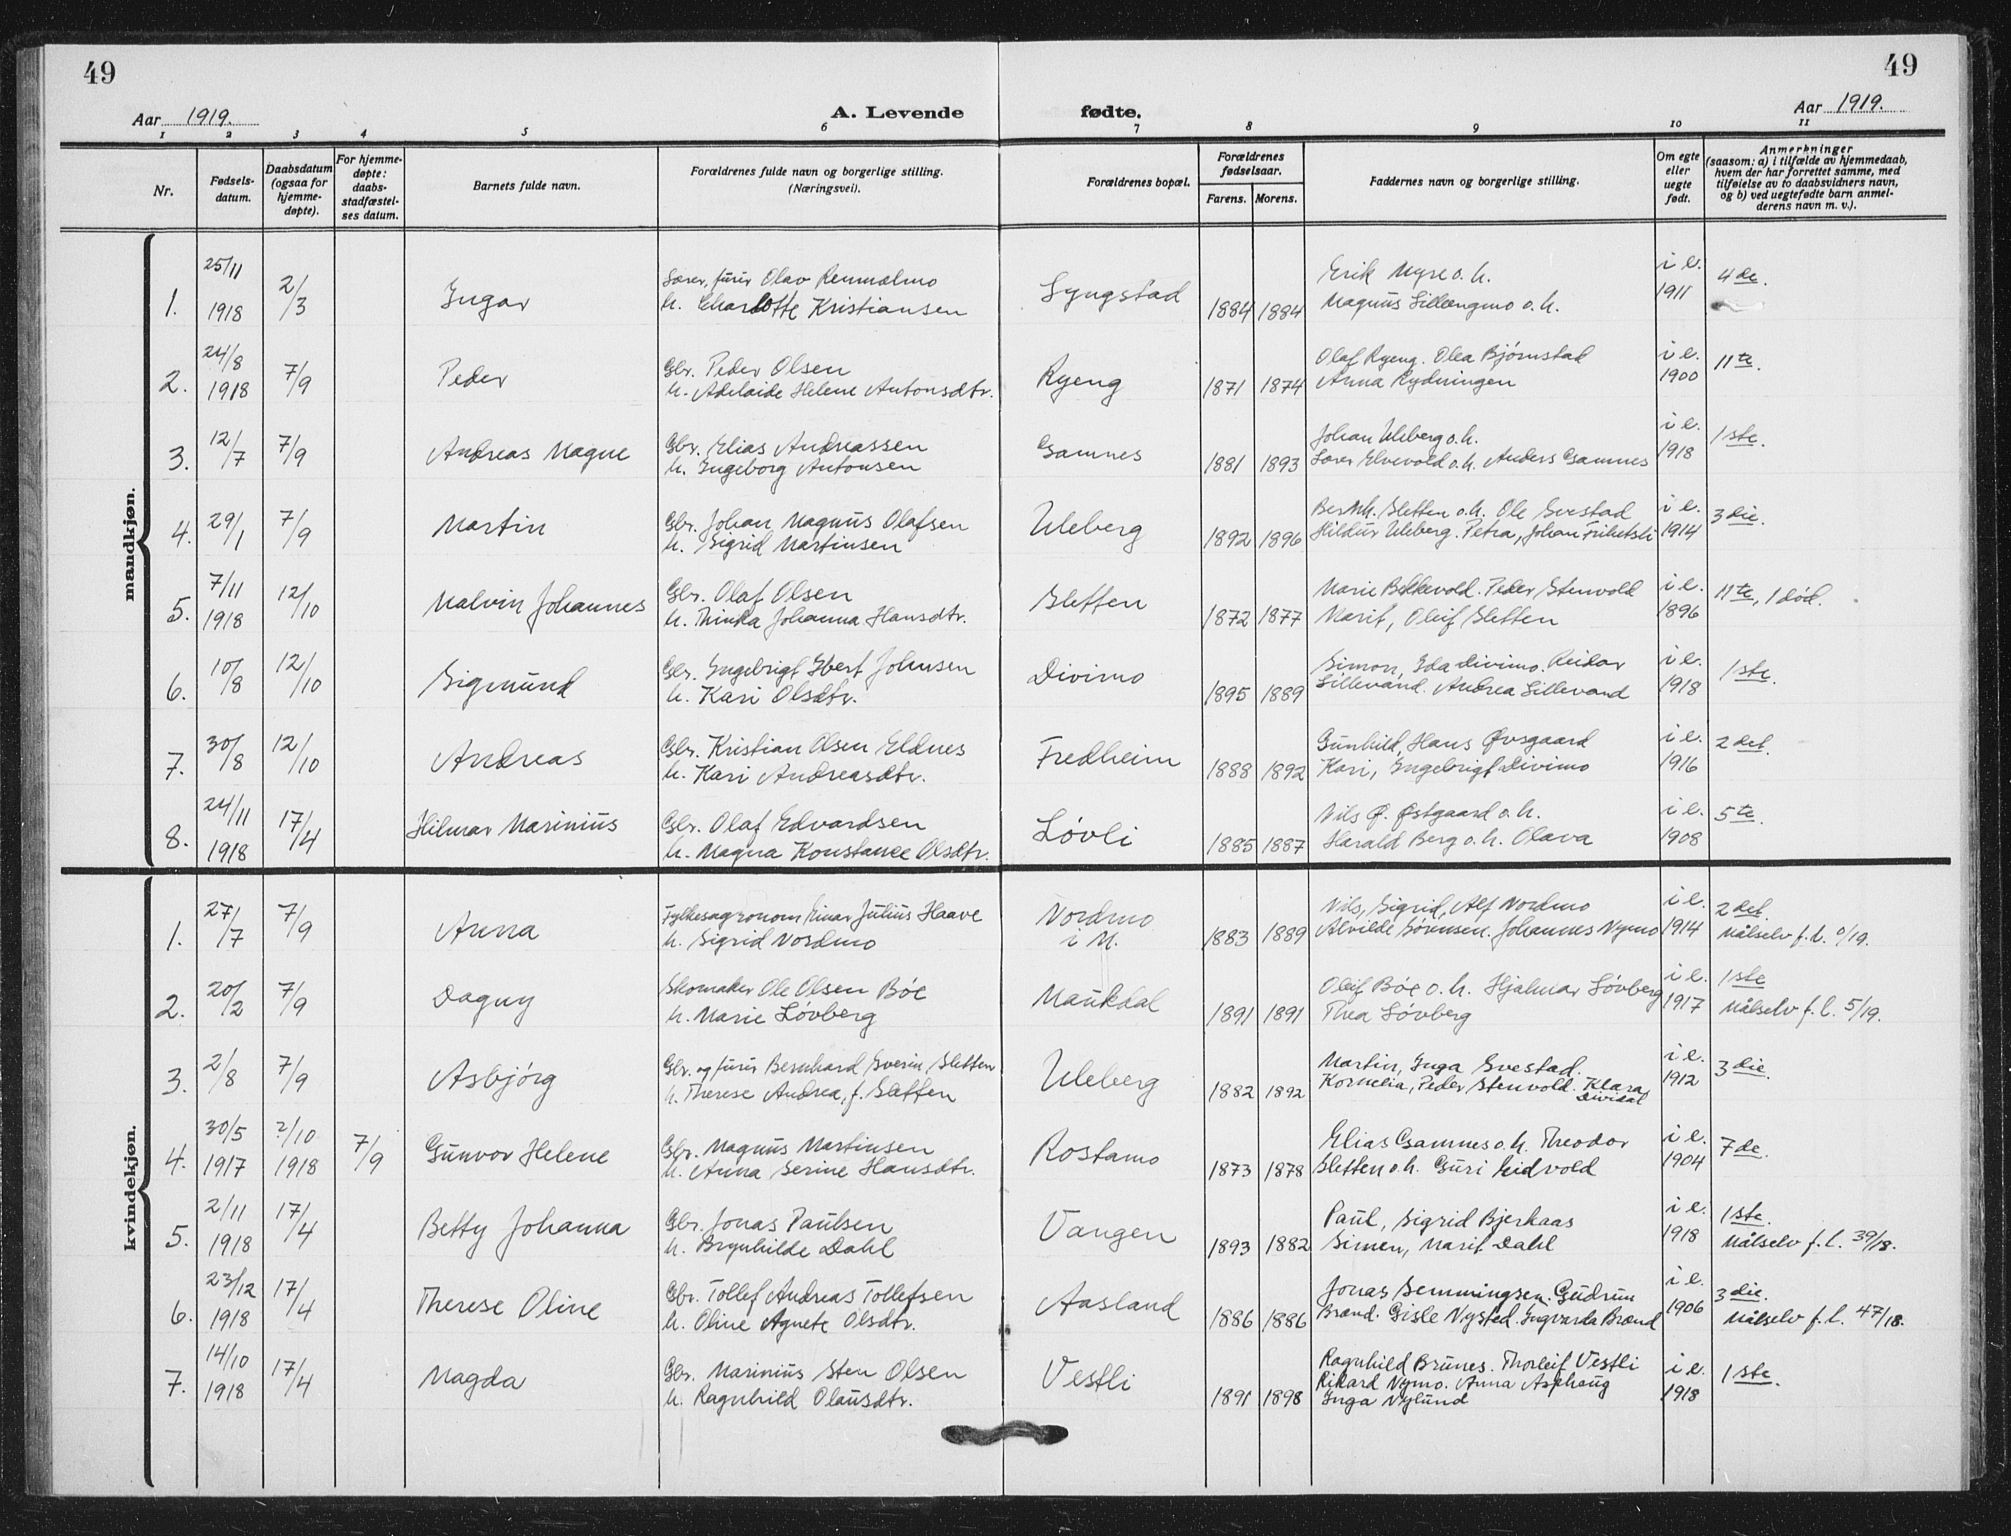 49
49
Aar 1919.
A. Levende
fødte.
Aar 1919.
1 2 3 4 5 6 7 8 9 10 11
Nr.
Fødsels-
datum.
Daabsdatum
(ogsaa for
hjemme-
døpte).
For hjemme-
døpte:
daabs-
stadfæstel-
ses datum.
Barnets fulde navn.
Forældrenes fulde navn og borgerlige stilling.
(Næringsvei).
Forældrenes bopæl.
Forældrenes
fødselsaar.
Farens. Morens.
Faddernes navn og borgerlige stilling.
Om egte
eller
uegte
født.
Anmerkninger
(saasom: a) i tilfælde av hjemmedaab,
hvem der har forrettet samme, med
tilføielse av to daabsvidners navn,
og b) ved uegtefødte barn anmel-
derens navn m. v.).
mandkjøn.
25/11 2/3 Lærer, furer Olav Renmælmo Erik Myre o. h. i e. 4de.
1. 1918 Ingar h. Charlotte Kristiansen Lyngstad 1884 1884 Magnus Lillængmo o. h. 1911
24/8 7/9 Gbr. Peder Olsen Olaf Ryeng. Olea Bjørnstad i e. 11te.
2. 1918 Peder h. Adelaide Helene Antonsdtr. Ryeng 1871 1874 Anna Rydningen 1900
12/7 7/9 Gbr. Elias Andreassen Johan Uleberg o. h. i e. 1ste.
3. Andreas Magne h. Ingeborg Antonsen Gamnes 1881 1893 Lærer Elvevold o. h. Anders Gamnes 1918
29/1 7/9 Gbr. Johan Magnus Olafsen Bernh. Sletten o. h. Ole Svestad i e. 3die.
4. Martin h. Sigrid Martinsen Uleberg 1892 1896 Hildur Uleberg. Petra, Johan Frihetsli 1914
7/11 12/10 Gbr. Olaf Olsen Marie Bekkevold. Peder Stenvold i e. 11te, 1 død.
5. 1918 Malvin Johannes h. Thinka Johanna Hansdtr. Sletten 1872 1877 Marit, Oleif Sletten 1896
10/8 12/10 Gbr. Ingebrigt Ebert Johnsen Simon, Eda Divimo. Reidar i e. 1ste.
6. Sigmund h. Kari Olsdtr. Divimo 1895 1889 Lillevand. Andrea Lillevand 1918
30/8 12/10 Gbr. Kristian Olsen Eldnes Gunhild, Hans Øvsgaard i e. 2det.
7. Andreas h. Kari Andreasdtr. Fredheim 1888 1892 Kari, Ingebrigt Divimo 1916
24/11 17/4 Gbr. Olaf Edvardsen Nils Ø. Østgaard o. h. i e. 5te.
8. 1918 Hilmar Marinius h. Magna Konstance Olsdtr. Løvli 1885 1887 Harald Berg o. h. Olava 1908
kvindekjøn.
27/7 7/9 Fylkesagronom Einar Julius Haave Nordmo Nils, Sigrid, Alf Nordmo i e. 2det.
1. Anna h. Sigrid Nordmo i M. 1883 1889 Alvilde Sørensen. Johannes Nymo 1914 Målselv f. l. 0/19.
20/2 7/9 Skomaker Ole Olsen Bøe Oleif Bøe o. h. Hjalmar Løvberg i e. 1ste
2. Dagny h. Marie Løvberg Maukdal 1891 1891 Thea Løvberg 1917 Målselv f. l. 5/19.
2/8 7/9 Gbr. og furer Bernhard Sverin Sletten Martin, Inga Svestad. i e. 3die.
3. Asbjørg h. Therese Andrea, f. Sletten Uleberg 1882 1892 Kornelia, Peder Stenvold. Klara 1912
Dividal
30/5 2/10 7/9 Gbr. Magnus Martinsen Elias Gamnes o. h. Theodor i e. 7de.
4. 1917 1918 Gunvor Helene h. Anna Serine Hansdtr. Rostamo 1873 1878 Sletten o. h. Guri Eidvold 1904
2/11 17/4 Gbr. Jonas Paulsen Paul, Sigrid Bjerkaas i e. 1ste.
5. 1918 Betty Johanna h. Brynhilde Dahl Vangen 1893 1882 Simen, Marit Dahl 1918 Målselv f. l. 39/18.
23/12 17/4 Gbr. Tollef Andreas Tollefsen Jonas Semmingsen. Gudrun i e. 3die.
6. 1918 Therese Oline h. Oline Agnete Olsdtr. Aasland 1886 1886 Brænd. Gisle Nysted. Ingvarda Brænd 1906 Målselv f. l. 47/18.
14/10 17/4 Gbr. Marinius Sten Olsen Ragnhild Brunes. Thorleif Vestli i e. 1ste.
7. 1918 Magda h. Ragnhild Olausdtr. Vestli 1891 1898 Rikard Nymo. Anna Asphaug 1918
Inga Nylund